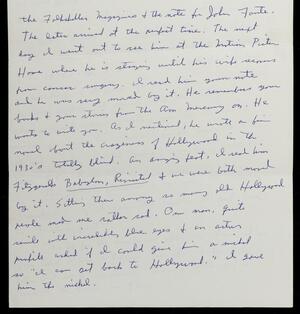 the Folkteller Magazines & the note for John Fante.
The letter arrived at the perfect time. The next
day I went out to see him at the Motion Picture
Home where he is staying until his wife recovers
from cancer surgery. I read him your note
and he was very moved by it. He remembers your
books & your stories from the Am Mercury on. He
wants to write you. As I mentioned, he wrote a fine
novel about the craziness of Hollywood in the
1930's totally blind. An amazing feat. I read him
Fitzgeralds Babylon, Revisited & we were both moved
by it. Sitting there among so many old Hollywood
people made me rather sad. One man, quite
senile with incredibly blue eyes & an actors
profile asked if I could give him a nickel
so "I can get back to Hollywood." I gave
him the nickel.